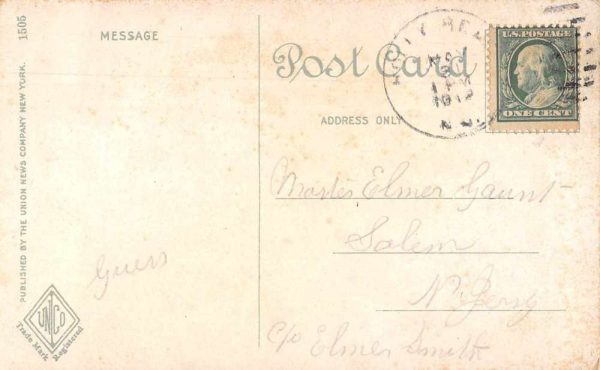 1505
PUBLISHED BY THE UNION NEWS COMPANY NEW YORK.
MESSAGE
Post Card
ADDRESS ONLY
U.S. POSTAGE
ONE CENT
1912
N.J.
Master Elmer Gaunt
Salem
N. Jersy
c/o Elmer Smith
Guess
UNCO
Trade Mark Registered